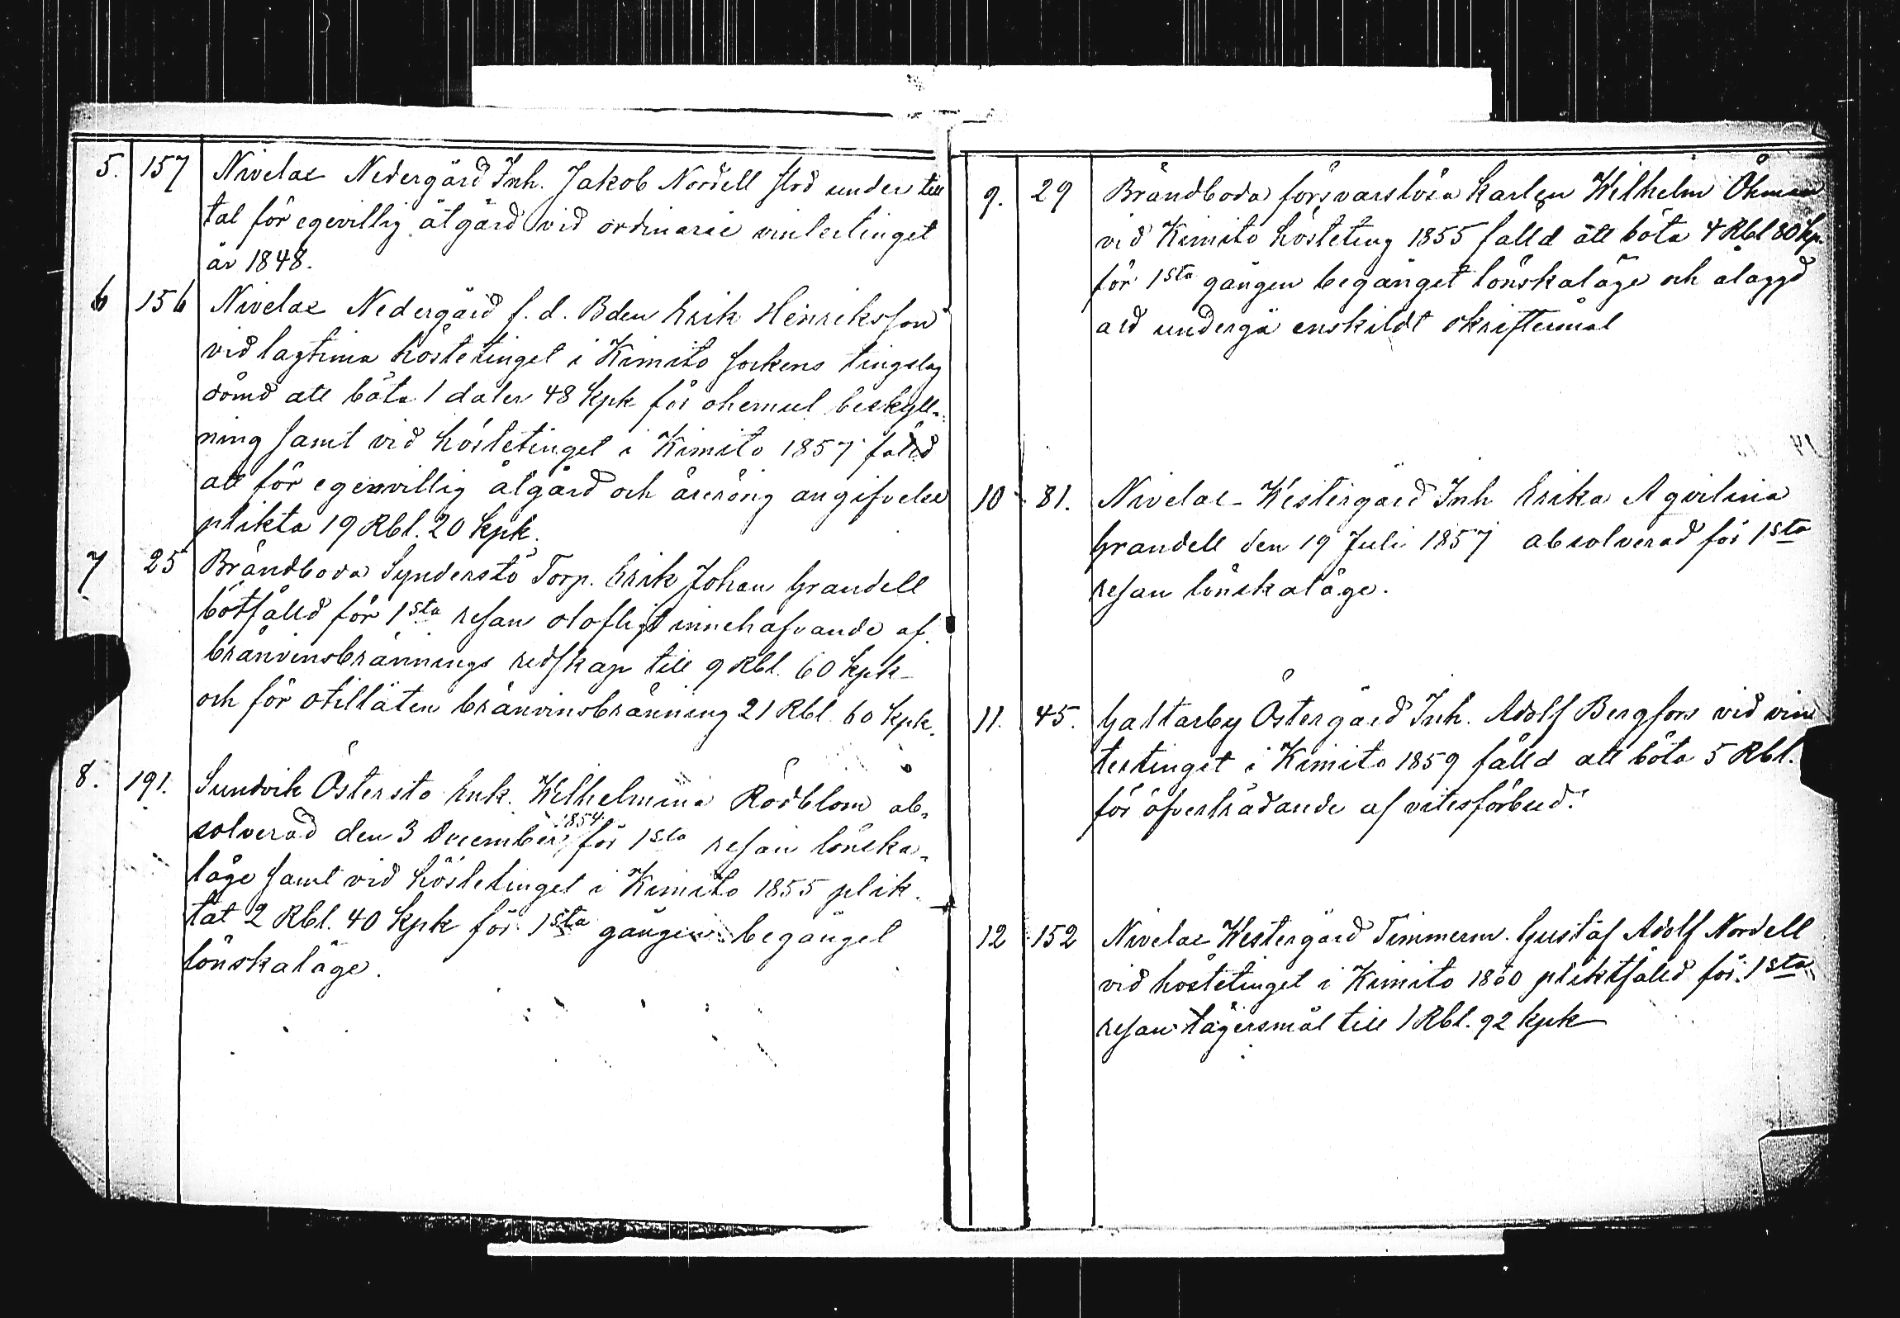 5. 157 Nivelax Nedergård Inh. Jakob Nordell stod under till
tal för egevillig åtgärd vid ordinarie vintertinget
år 1848.
6 156 Nivelax Nedergård f. d. Bden Erik Henriksson
vid lagtima hösttetinget i Kimito sockens tingslag
dömd att böta 1 daler 48 kpk för ohemul beskyll-
ning samt vid höstetinget i Kimito 1857 fälld
att för egenvillig åtgärd och ärerörig angifvelse
plikta 19 Rbl. 20 kpk.
7 25 Brändboda Synderstö Torp. Erik Johan Grandell
botfälld för 1sta resan olofligt innehafvande af
bränvinsbrännings redskap till 9 Rbl. 60 kpk
och för otillåten bränvinsbränning 21 Rbl. 60 kpk.
8. 191. Sundvik Östersto Enk. Wilhelmina Rödblom ab-
solverad den 3 December 1854 för 1sta resan lönska-
läge samt vid höstetinget i Kimito 1855 plik-
tat 2 Rbl. 40 kpk för 1sta gången begånget
lönskaläge.
9. 29 Brändboda försvarslösa karlen Wilhelm Öhman
vid Kimito hösteting 1855 fälld att böta 4 Rbl 80 kp.
för 1sta gången begånget lönskaläge och ålaggd
atd undergå enskildt skriftermål
10 81. Nivelax Westergård Inh Erika Aqvilina
Grandell den 19 Juli 1857 absolverad för 1sta
resan lönskaläge.
11. 45. Galtarby Östergård Inh. Adolf Bergfors vid vin
tertinget i Kimito 1859 fälld att böta 5 Rbl.
för öfverträdande af vitesförbud.
12 152 Nivelax Westergård Timmerm. Gustaf Adolf Nordell
vid höstetinget i Kimito 1860 pliktfälld för 1sta
resan lägersmål till 1 Rbl. 92 kpk